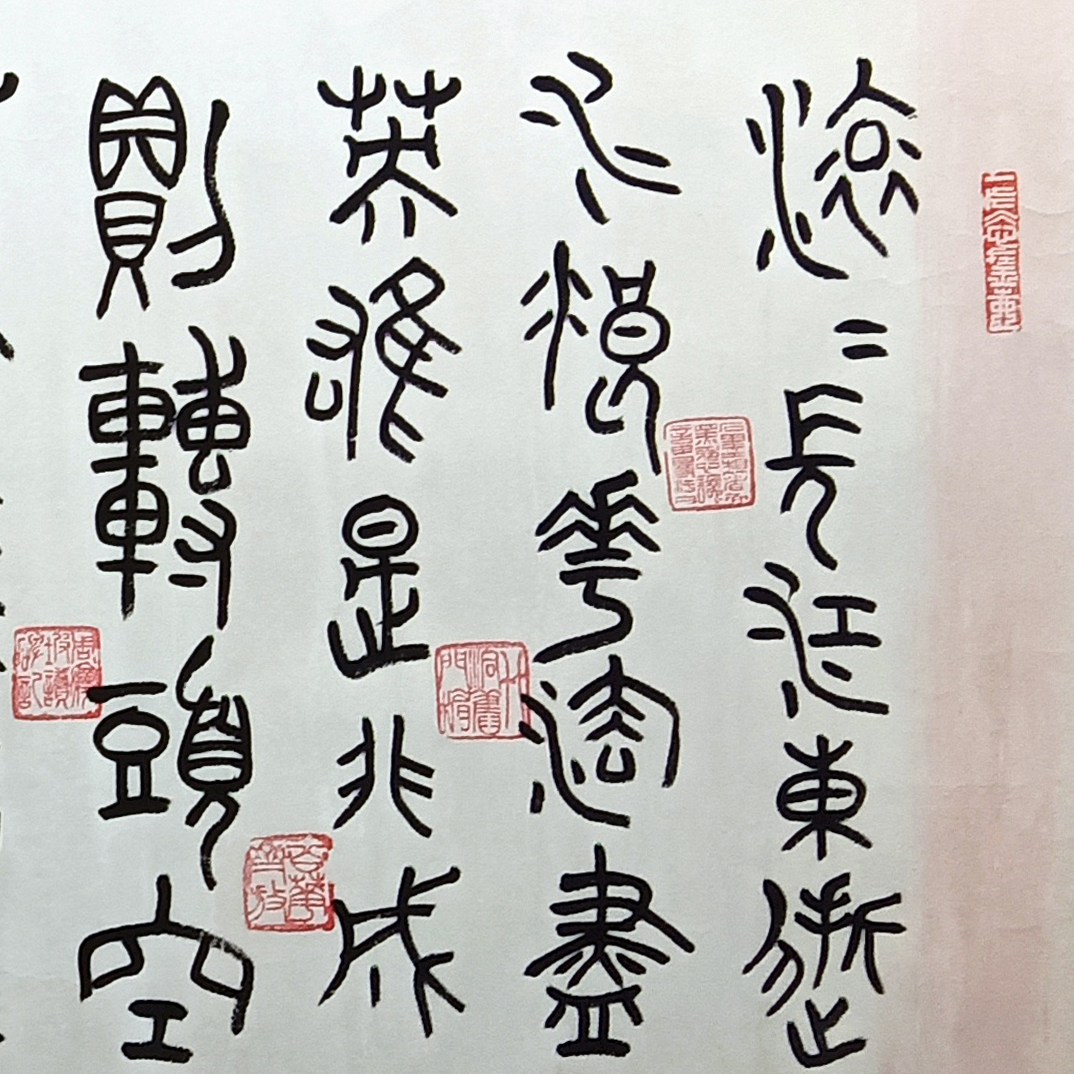 滾〻長江東逝
水浪華淘盡
英雄是非成
敗轉頭空